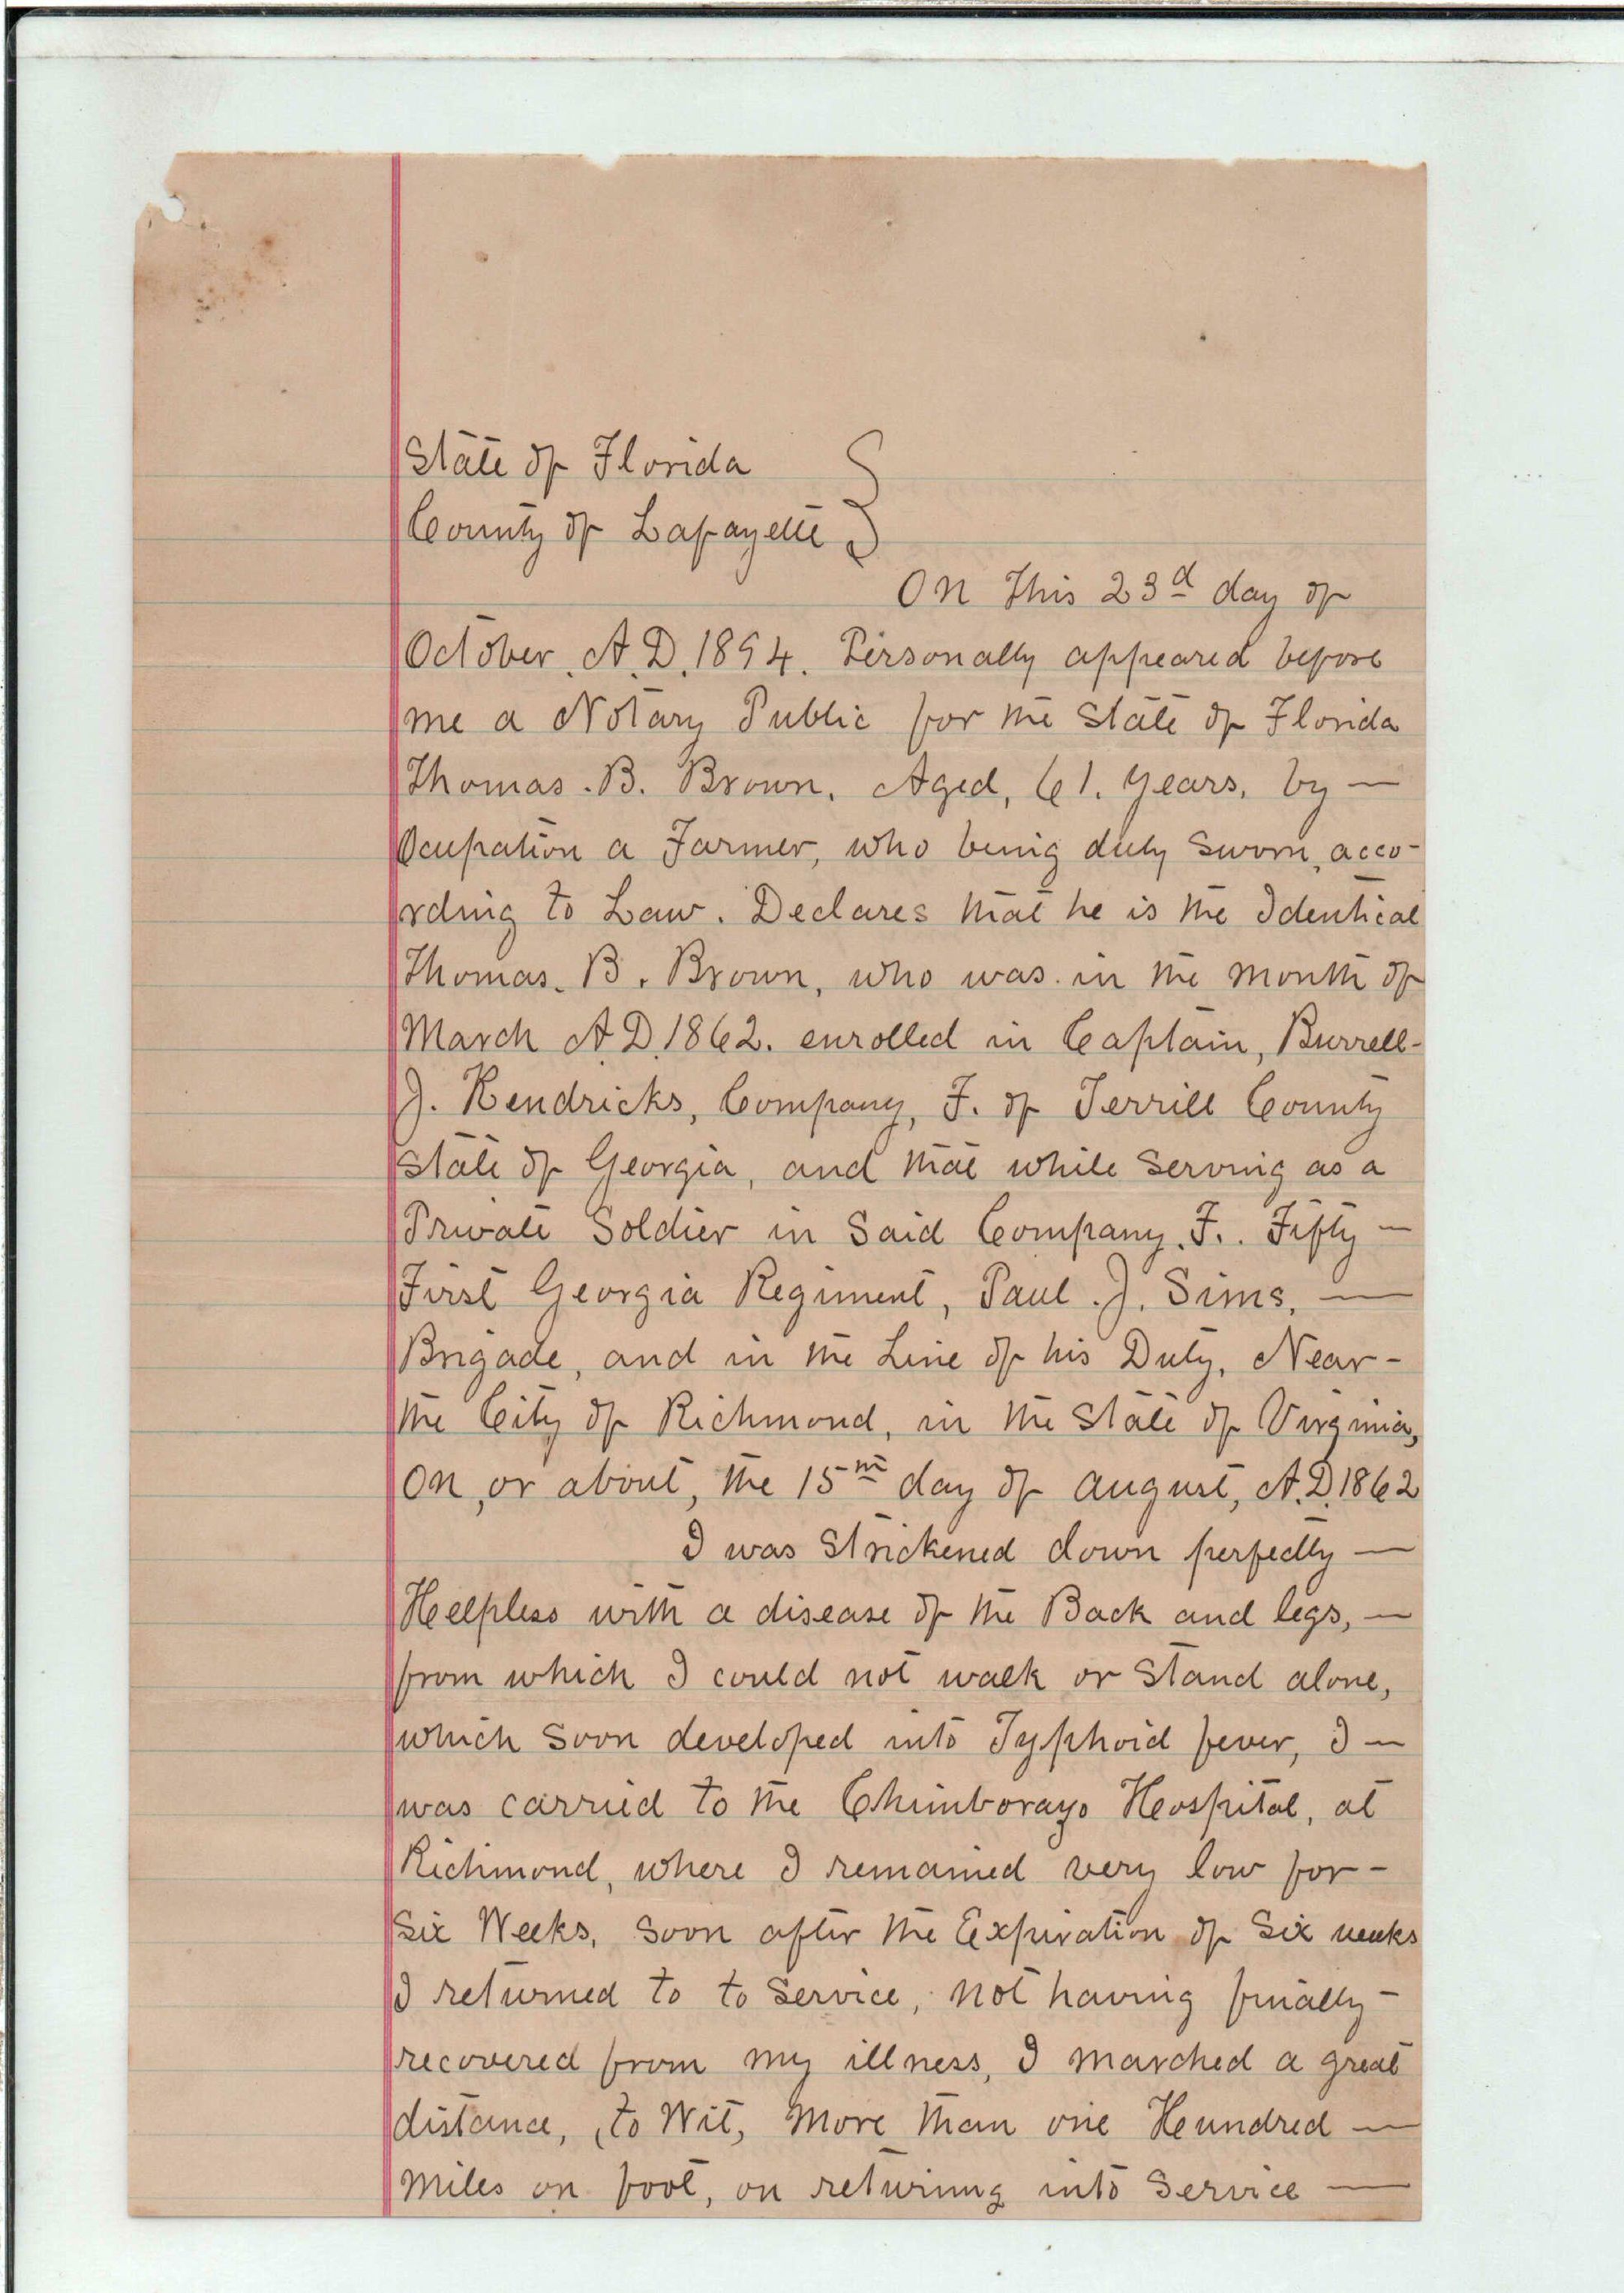 State of Florida
County of Lafayette
On this 23d day of
October. A.D. 1894. Personally appeared before
me a Notary Public for the State of Florida
Thomas. B. Brown. Aged, 61. years, by —
Ocupation a Farmer, who being duly Sworn, acco-
rding to Law. Declares that he is the Identical
Thomas. B. Brown, who was in the month of
March A.D. 1862. enrolled in Captain, Burrell-
J. Kendricks, Company, F. of Terrill County
State of Georgia, and that while Serving as a
Private Soldier in Said Company. F.. Fifty —
First Georgia Regiment, Paul. J. Sims. —
Brigade, and in the Line of his Duty. Near -
the City of Richmond, in the State of Virginia,
on, or about, the 15th day of August, A.D. 1862
I was Strickened down perfectly —
Helpless with a disease of the Back and legs, —
from which I could not walk or Stand alone,
which Soon developed into Typhoid fever, I —
was carried to the Chimborazo Hospital, at
Richmond, where I remained very low for -
Six Weeks, Soon after the Expiration of Six weeks
I returned to to Service, not having finally -
recovered from my illness, I marched a great
distance, to Wit, More than one Hundred —
Miles on foot, on returning into Service —